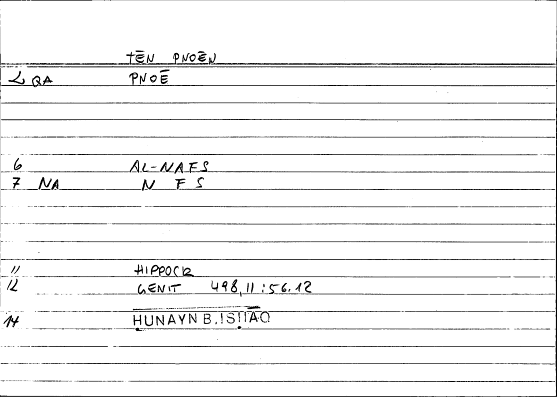 TĒN PNOĒN
2 QA PNOĒ
6 AL-NAFS
7 NA N F S
11 HIPPOCR
12 GENIT 498,11:56.12
14 ḤUNAYN B. ISḤĀQ